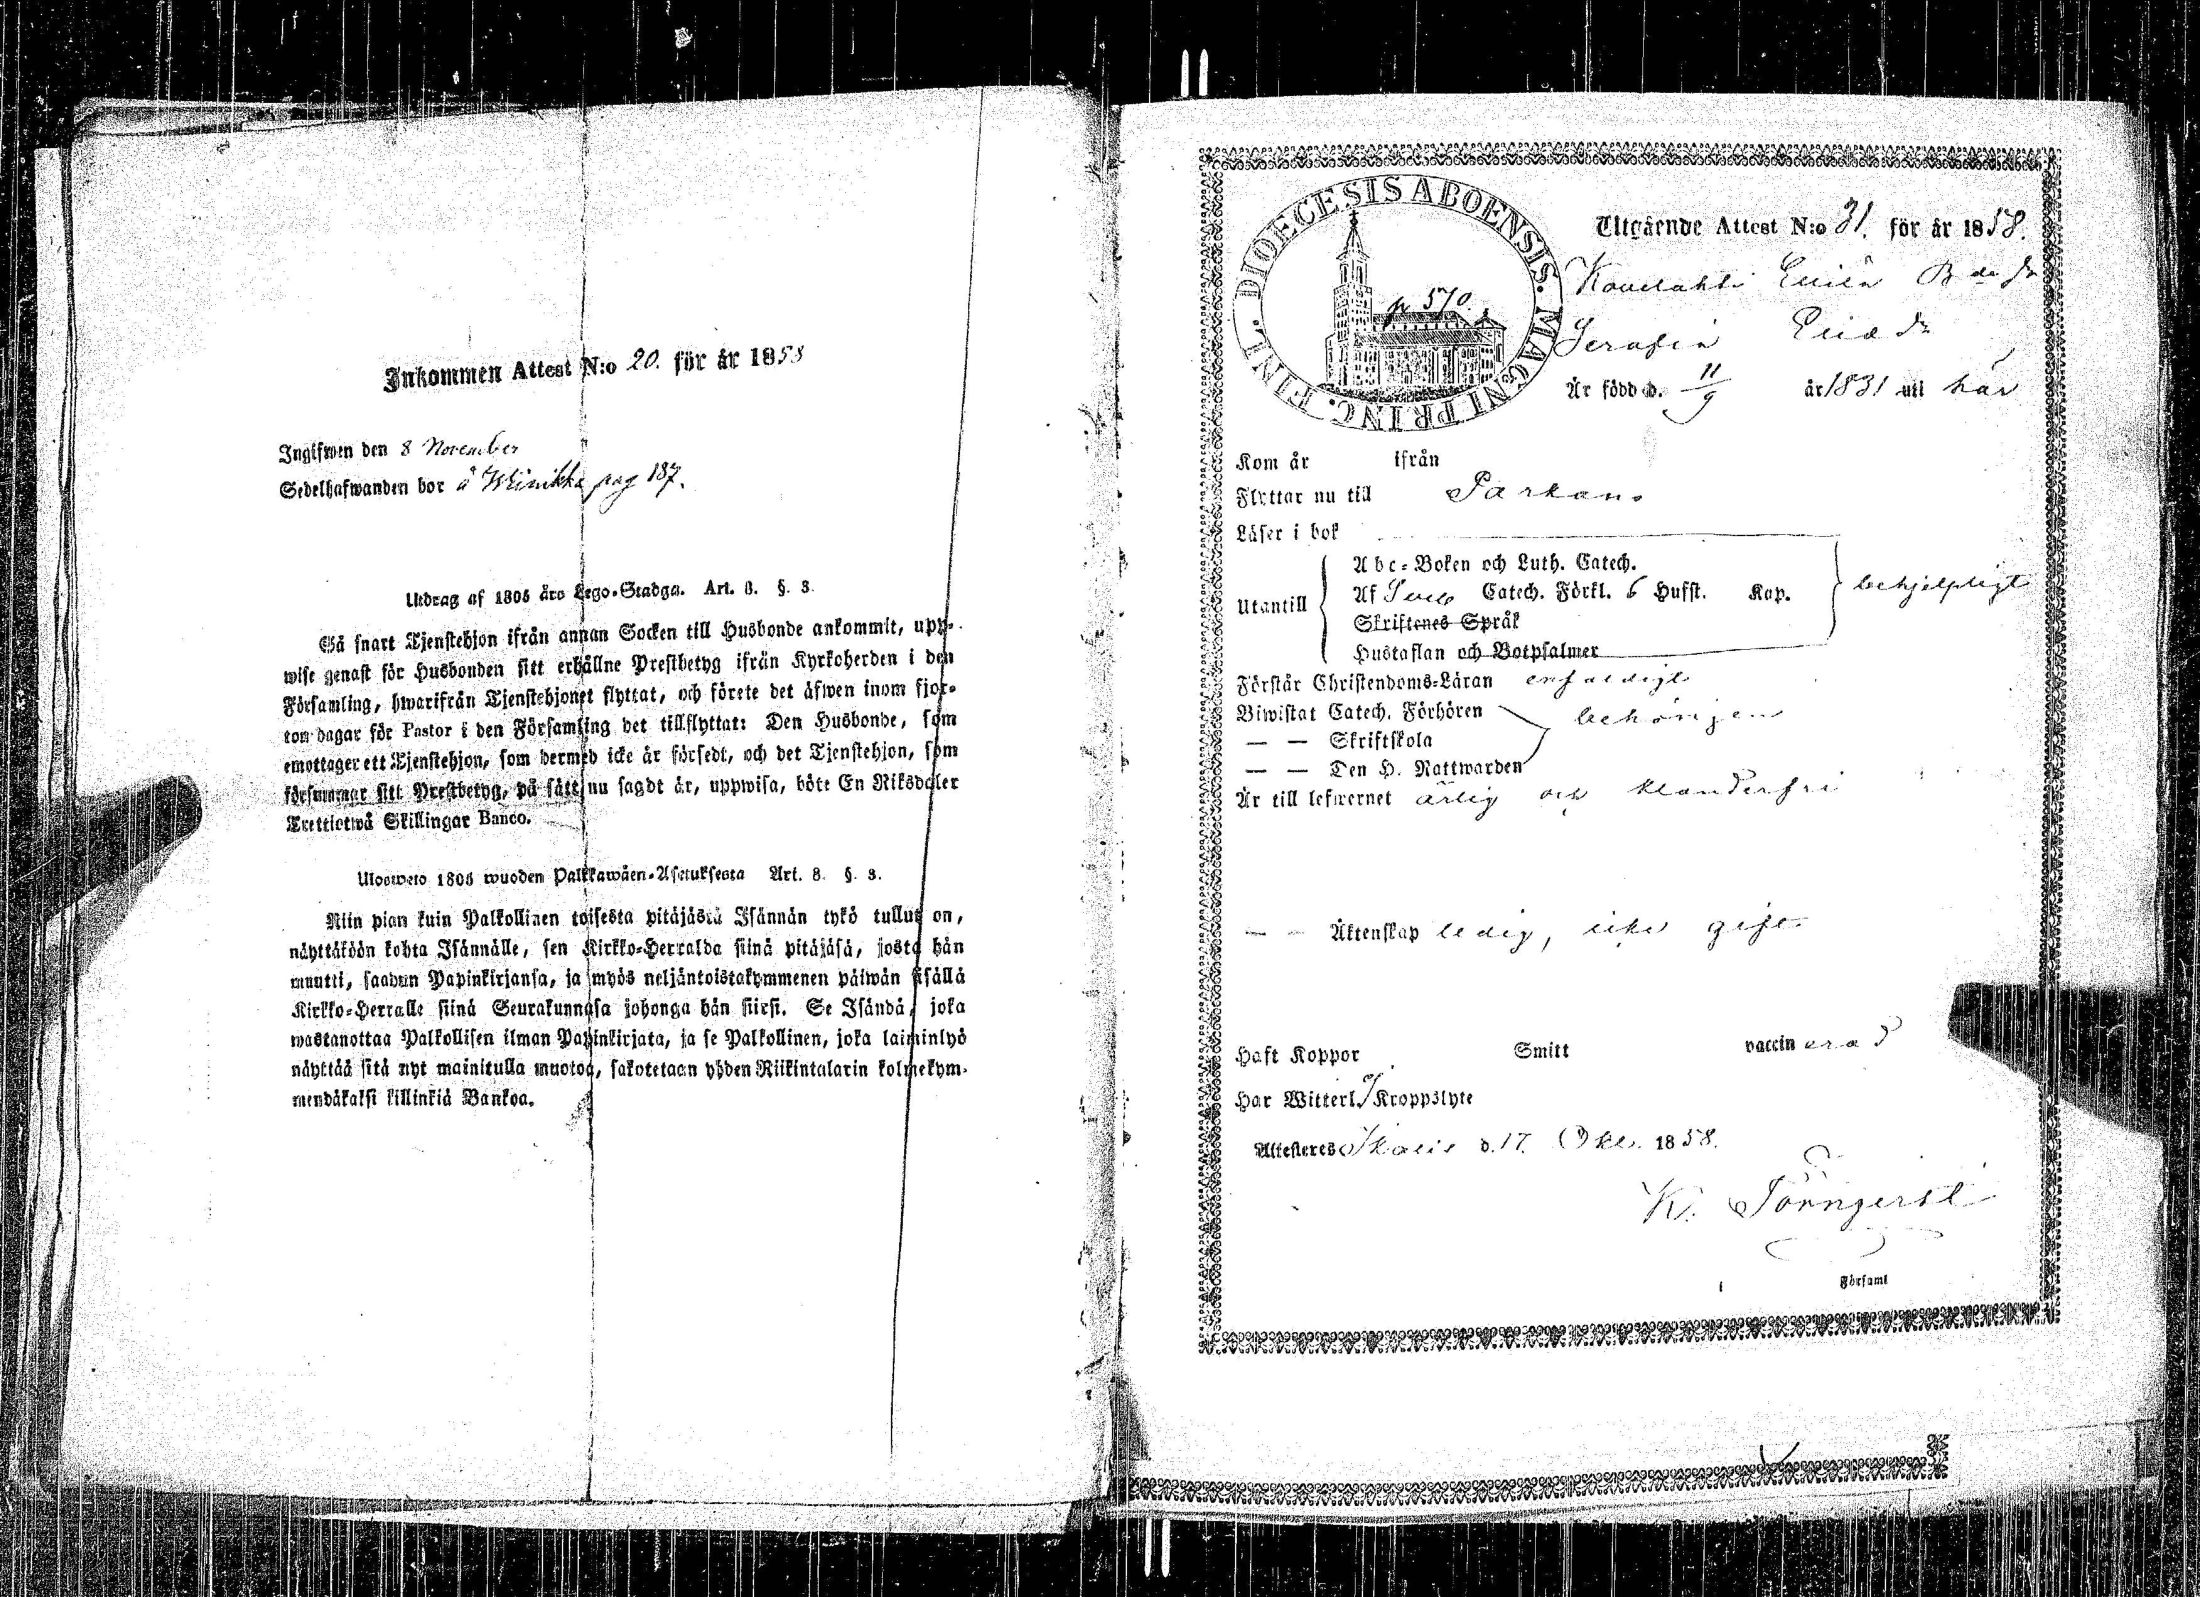 Inkommen Attest N:o 20. för år 1858
Ingifwen den 8 November
Sedelhafwanden bor å pag 187.
Utdrag af 1805 års Lego-Stadga. Art. 8. §. 3.
Så snart Tjenstehjon ifrån annan Socken till Husbonde ankommit, upp-
wise genast för Husbonden sitt erhållne Prestbetyg ifrån Kyrkoherden i den
Församling, hwarifrån Tjenstehjonet flyttat, och förete det äfwen inom fjor-
ton dagar för Pastor i den Församling det tillflyttat: Den Husbonde, som
emottager ett Tjenstehjon, som dermed icke är försedt, och det Tjenstehjon, som
försummar sitt Prestbetyg, på sätt nu sagdt är, uppwisa, böte En Riksdaler
Trettiotwå Skillingar Banco.
Ulosweto 1805 wuoden Palkkawäen-Asetuksesta Art. 8. §. 3.
Niin pian kuin Palkollinen toisesta pitäjästä Isännän tykö tullut on,
näyttäköön kohta Isännälle, sen Kirkko-Herralda siinä pitäjäsä, josta hän
muutti, saadun Papinkirjansa, ja myös neljäntoistakymmenen päiwän sisällä
Kirkko-Herralle siinä Seurakunnasa johonga hän siirsi. Se Isändä, joka
wastanottaa Palkollisen ilman Papinkirjata, ja se Palkollinen, joka laiminlyö
näyttää sitä nyt mainitulla muotoa, sakotetaan yhden Riikintalarin kolmekym-
mendäkaksi killinkiä Bankoa.
DIOECESIS ABOENSIS. MAGNI PRINC. FINL.
p 570.
Utgående Attest N:o 31. för år 1858.
Serafia
Är född d. 11/9 år 1831 uti här
Kom år ifrån
Flyttar nu till Parkano
Läser i bok
Utantill
Abc-Boken och Luth. Catech.
Af Catech. Förkl. 6 Hufst. Kap.
Skriftenes Språk
Hustaflan och Botpsalmer
behjelpligt
Förstår Christendoms-Läran enfaldigt
Biwistat Catech. Förhören
— — Skriftskola
— — Den H. Nattwarden
behörigen
Är till lefwernet ärlig och klanderfri
— — Äktenskap ledig, icke gift
Haft Koppor Smitt vaccinerad
Har Witterl. Kroppslyte
Attesteres d. 17. Okt. 1858.
K.
Församl